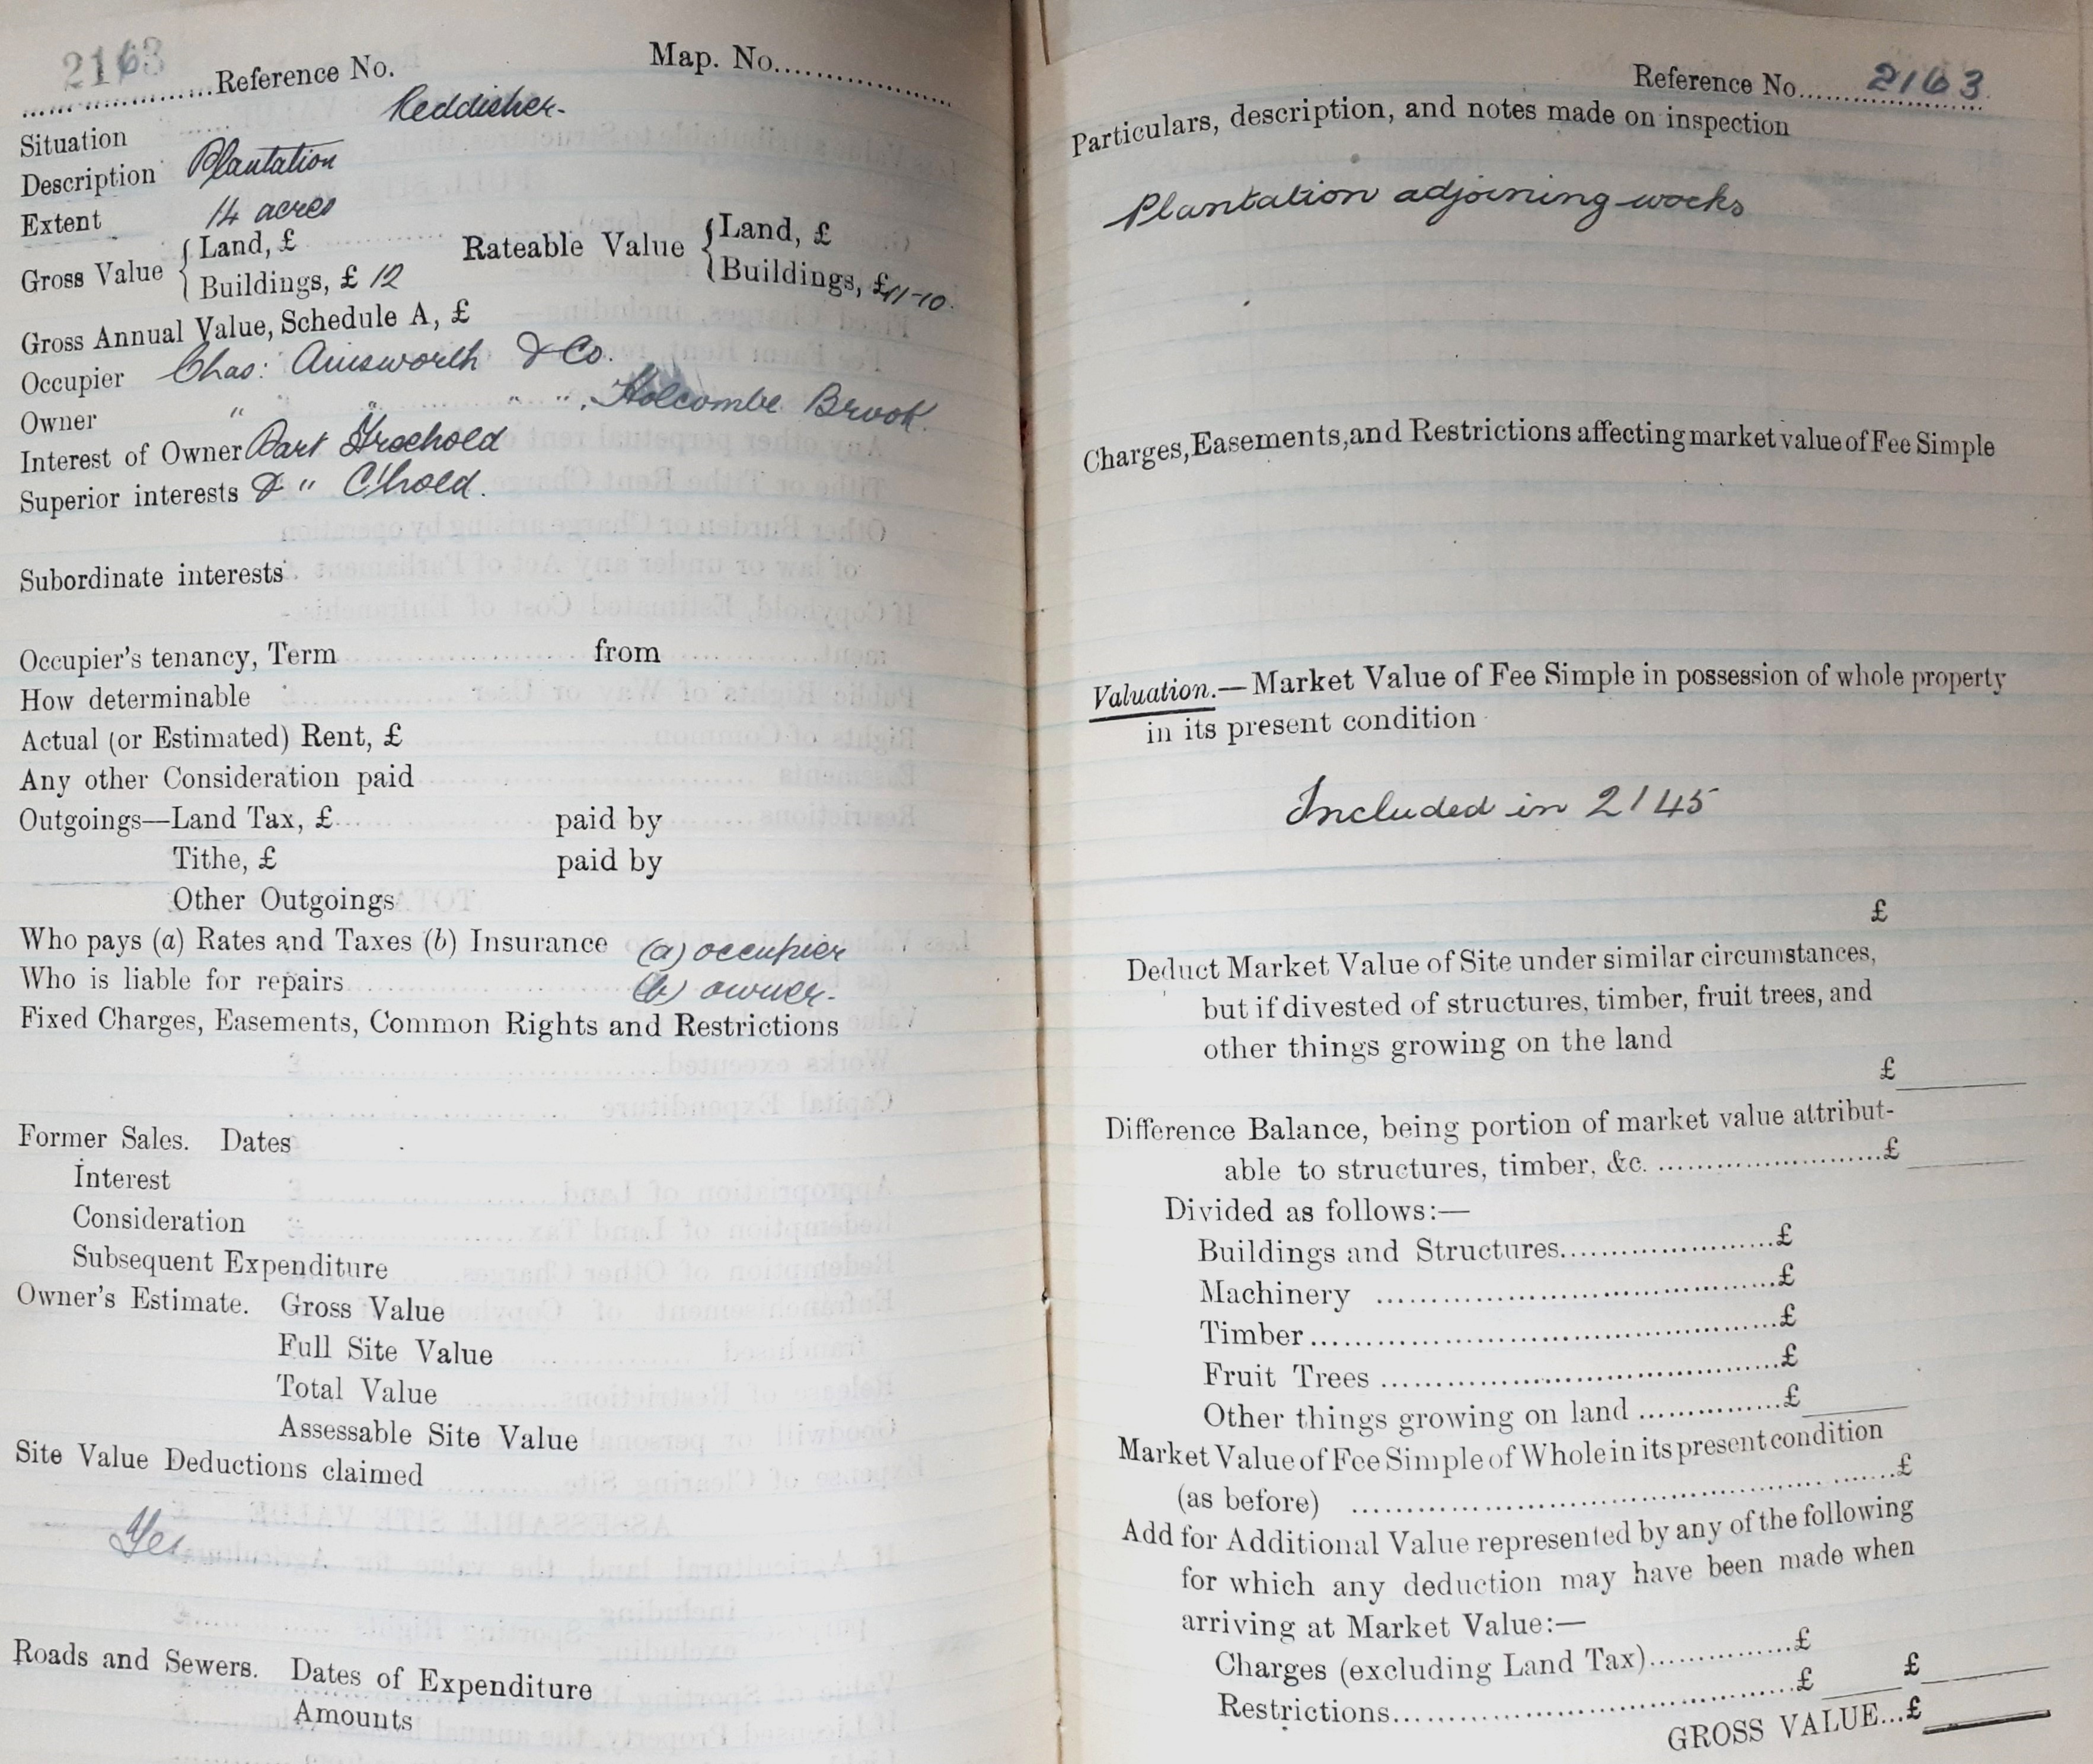 2163
Reference No. Map. No.
Situation Reddisher.
Description Plantation
Extent 14 acres
Gross Value { Land, £ Rateable Value { Land, £
Buildings, £ 12 Buildings, £11-10.
Gross Annual Value, Schedule A, £
Occupier Chas: Ainsworth & Co.
Owner " " " ", Holcombe Brook.
Interest of Owner Part Freehold
Superior interests & " C'hold.
Subordinate interests
Occupier's tenancy, Term from
How determinable
Actual (or Estimated) Rent, £
Any other Consideration paid
Outgoings—Land Tax, £ paid by
Tithe, £ paid by
Other Outgoings
Who pays (a) Rates and Taxes (b) Insurance (a) occupier
Who is liable for repairs (b) owner.
Fixed Charges, Easements, Common Rights and Restrictions
Former Sales. Dates
Interest
Consideration
Subsequent Expenditure
Owner's Estimate. Gross Value
Full Site Value
Total Value
Assessable Site Value
Site Value Deductions claimed
Yes
Roads and Sewers. Dates of Expenditure
Amounts
Reference No. 2163
Particulars, description, and notes made on inspection
Plantation adjoining works
Charges, Easements, and Restrictions affecting market value of Fee Simple
Valuation.—Market Value of Fee Simple in possession of whole property
in its present condition
Included in 2145
£
Deduct Market Value of Site under similar circumstances,
but if divested of structures, timber, fruit trees, and
other things growing on the land
£
Difference Balance, being portion of market value attribut-
able to structures, timber, &c. £
Divided as follows:—
Buildings and Structures £
Machinery £
Timber £
Fruit Trees £
Other things growing on land £
Market Value of Fee Simple of Whole in its present condition
(as before) £
Add for Additional Value represented by any of the following
for which any deduction may have been made when
arriving at Market Value:—
Charges (excluding Land Tax) £
Restrictions £ £
GROSS VALUE...£